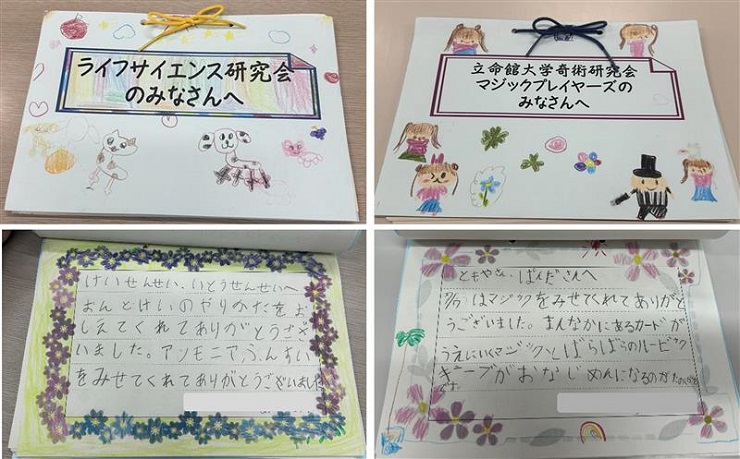 ライフサイエンス研究会
のみなさんへ
立命館大学奇術研究会
マジックプレイヤーズの
みなさんへ
けいせんせい、いとうせんせいへ
おんどけいのやりかたをお
しえてくれてありがとうござ
いました。アンモニアふんすい
をみせてくれてありがとうございました
ともやさん、ぱんださんへ
はマジックをみせてくれてありがと
うございました。まんなかにあるカードが
うえにいくマジックとばらばらのルービック
キューブがおなじめんになるのが
です